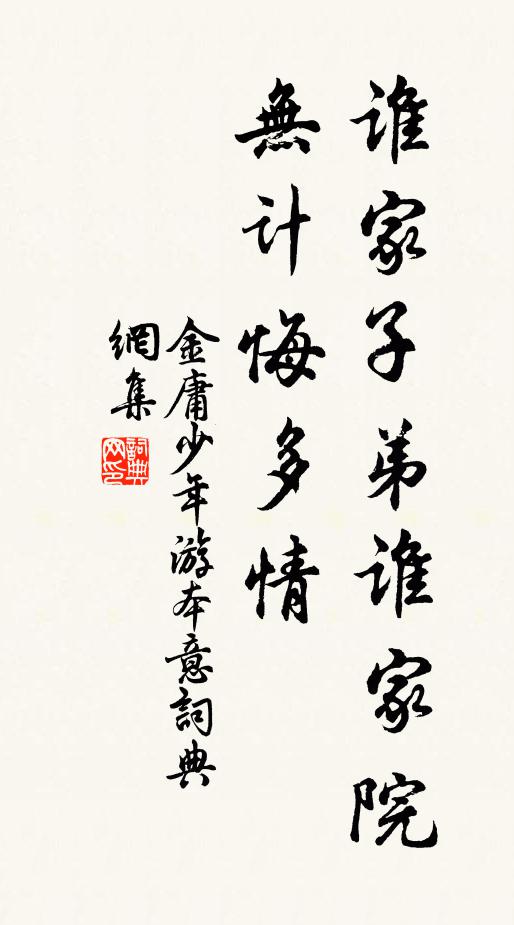 谁家子弟谁家院
無计悔多情
金庸少年游本意詞典
網集
詞典网印